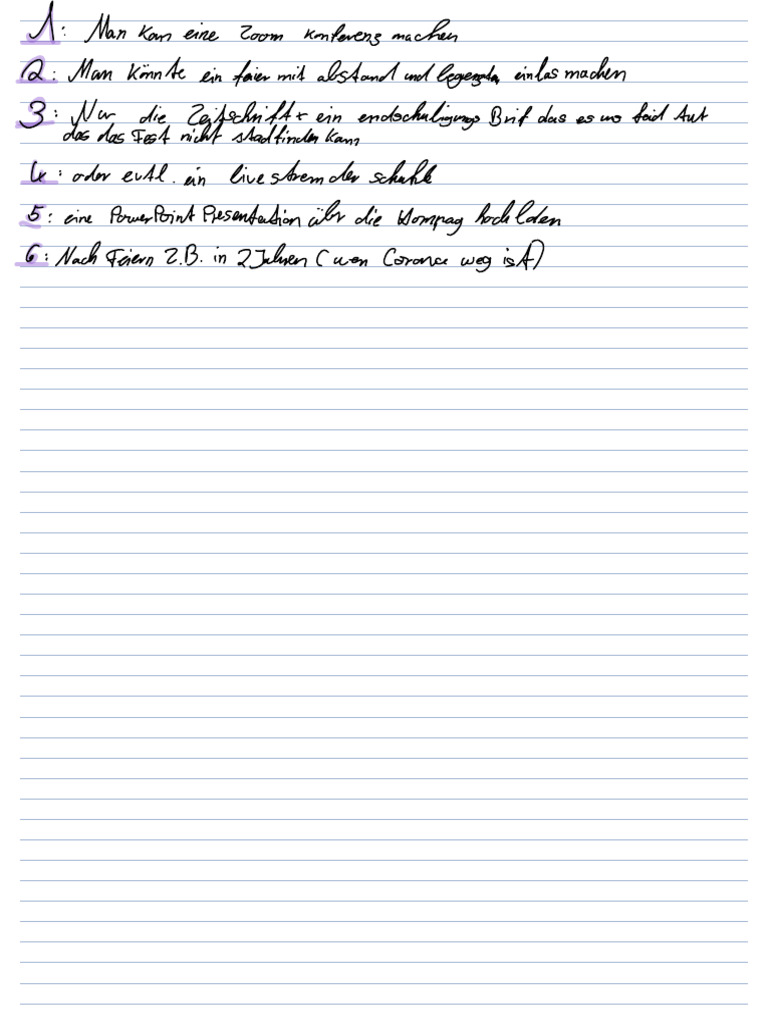 1: Man kan eine Zoom konferenz machen
2: Man könnte ein feier mit abstand und einlas machen
3: Nur die Zeitschrift + ein endschuligungs Brif das es uns leid tut
das das Fest nicht stadfinden kann
4: oder evtl. ein livestrem der schuhle
5: eine PowerPoint Presentation übr die Kompag hochlden
6: Nach Feiern z.B. in 2 Jahren (wen Corona weg ist)